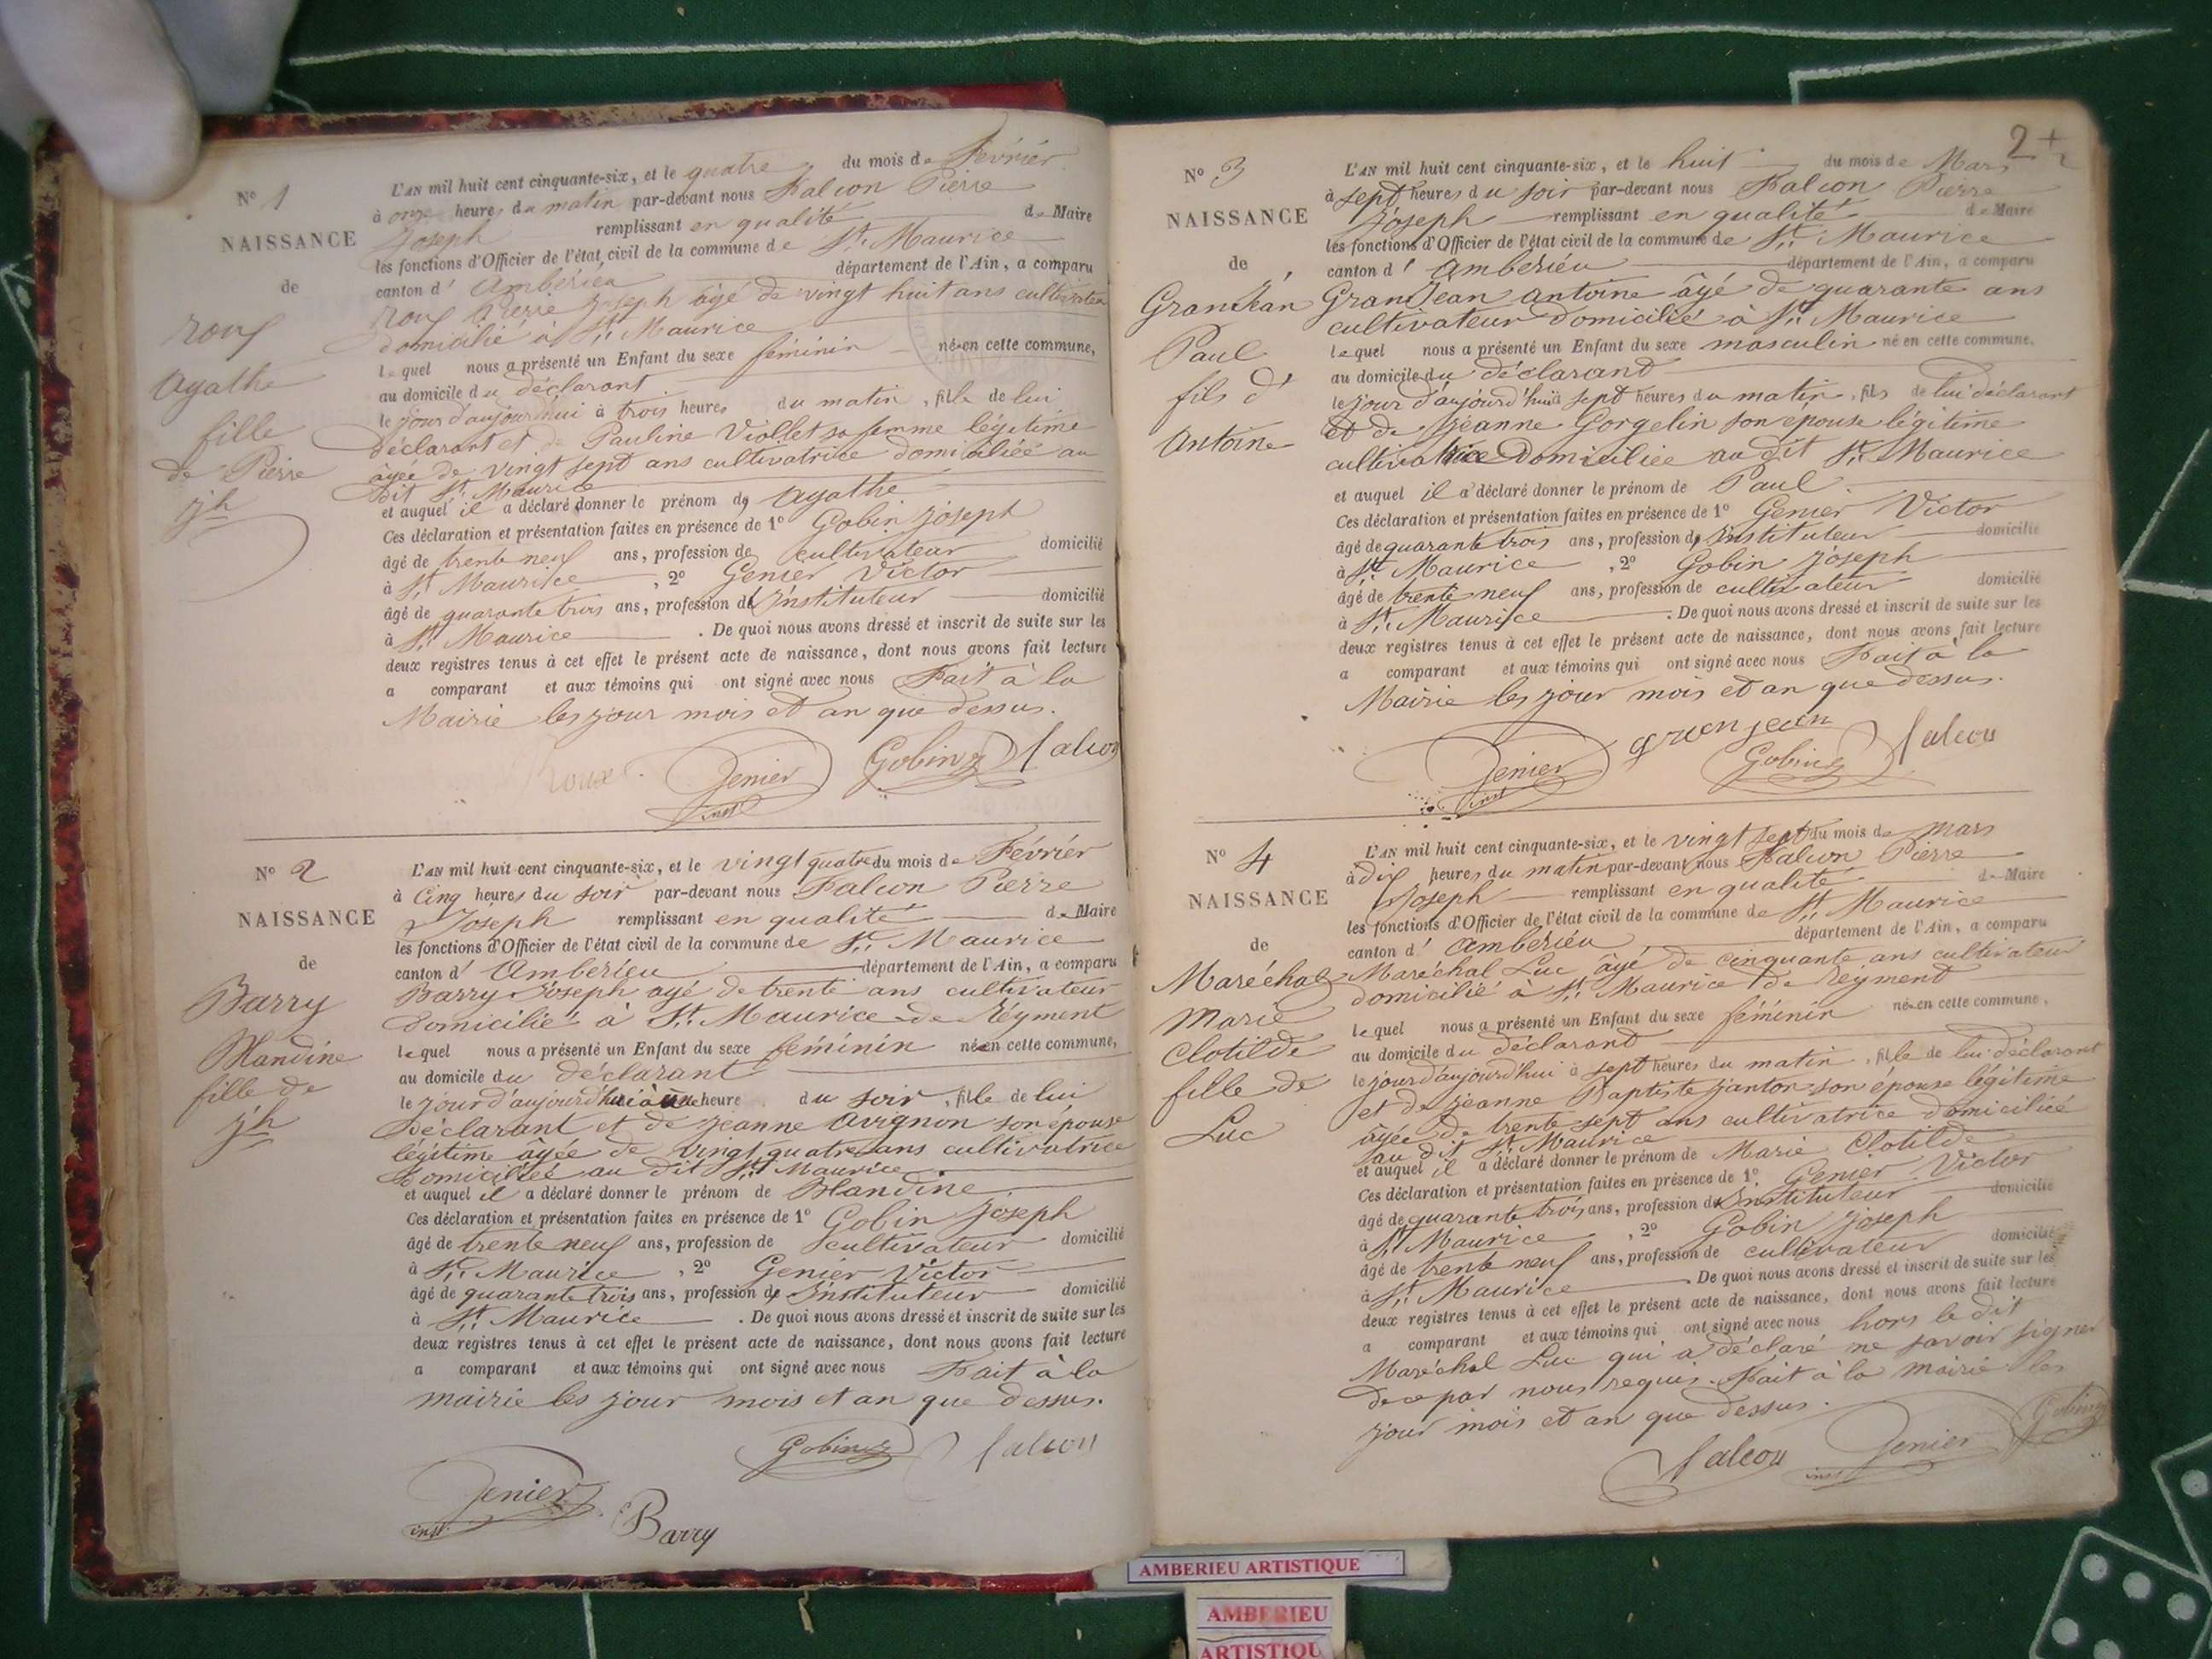 N° 1
NAISSANCE
de
Roux
Agathe
fille
de Pierre
jh
L'AN mil huit cent cinquante-six, et le quatre du mois de Février
à onze heures du matin par-devant nous Falcon Pierre
Joseph remplissant en qualité de Maire
les fonctions d'Officier de l'état civil de la commune de St. Maurice
canton d' Ambérieu département de l'Ain, a comparu
Roux Pierre Joseph âgé de vingt huit ans cultivateur
domicilié à St. Maurice
lequel nous a présenté un Enfant du sexe féminin né en cette commune,
au domicile du déclarant
le jour d'aujourd'hui à trois heures du matin, fille de lui
déclarant et de Pauline Viollet sa femme légitime
âgée de vingt sept ans cultivatrice domiciliée au
dit St. Maurice
et auquel il a déclaré donner le prénom de Agathe
Ces déclaration et présentation faites en présence de 1° Gobin Joseph
âgé de trente neuf ans, profession de cultivateur domicilié
à St. Maurice, 2° Genier Victor
âgé de quarante trois ans, profession de Instituteur domicilié
à St. Maurice. De quoi nous avons dressé et inscrit de suite sur les
deux registres tenus à cet effet le présent acte de naissance, dont nous avons fait lecture
a comparant et aux témoins qui ont signé avec nous Fait à la
Mairie les jour mois et an que dessus.
Roux Genier Gobin Falcon
inst
N° 2
NAISSANCE
de
Barry
Blandine
fille de
jh
L'AN mil huit cent cinquante-six, et le vingt quatre du mois de Février
à Cinq heures du soir par-devant nous Falcon Pierre
Joseph remplissant en qualité de Maire
les fonctions d'Officier de l'état civil de la commune de St. Maurice
canton d' Ambérieu département de l'Ain, a comparu
Barry Joseph agé de trente ans cultivateur
domicilié à St. Maurice de Réyment
lequel nous a présenté un Enfant du sexe féminin né en cette commune,
au domicile du déclarant
le jour d'aujourd'hui à une heure du soir, fille de lui
déclarant et de Jeanne Avignon son épouse
légitime âgée de vingt quatre ans cultivatrice
domiciliée au dit St. Maurice
et auquel il a déclaré donner le prénom de Blandine
Ces déclaration et présentation faites en présence de 1° Gobin Joseph
âgé de trente neuf ans, profession de cultivateur domicilié
à St. Maurice, 2° Genier Victor
âgé de quarante trois ans, profession de Instituteur domicilié
à St. Maurice. De quoi nous avons dressé et inscrit de suite sur les
deux registres tenus à cet effet le présent acte de naissance, dont nous avons fait lecture
a comparant et aux témoins qui ont signé avec nous Fait à la
mairie les jour mois et an que dessus.
Gobin Falcon
Genier
inst. Barry
2
N° 3
NAISSANCE
de
GranJéan
Paul
fils d'
Antoine
L'AN mil huit cent cinquante-six, et le huit du mois de Mars
à sept heures du soir par-devant nous Falcon Pierre
Joseph remplissant en qualité de Maire
les fonctions d'Officier de l'état civil de la commune de St. Maurice
canton d' Ambérieu département de l'Ain, a comparu
GranJean Antoine âgé de quarante ans
cultivateur domicilié à St. Maurice
lequel nous a présenté un Enfant du sexe masculin né en cette commune,
au domicile du déclarant
le jour d'aujourd'hui à sept heures du matin, fils de lui déclarant
et de Jéanne Gorgelin son épouse légitime
cultivatrice domiciliée au dit St. Maurice
et auquel il a déclaré donner le prénom de Paul
Ces déclaration et présentation faites en présence de 1° Genier Victor
âgé de quarante trois ans, profession de Instituteur domicilié
à St. Maurice, 2° Gobin Joseph
âgé de trente neuf ans, profession de cultivateur domicilié
à St. Maurice. De quoi nous avons dressé et inscrit de suite sur les
deux registres tenus à cet effet le présent acte de naissance, dont nous avons fait lecture
a comparant et aux témoins qui ont signé avec nous Fait à la
Mairie les jour mois et an que dessus.
Genier granjean Gobin Falcon
inst
N° 4
NAISSANCE
de
Maréchal
Marie
Clotilde
fille de
Luc
L'AN mil huit cent cinquante-six, et le vingt sept du mois de Mars
à dix heures du matin par-devant nous Falcon Pierre
Joseph remplissant en qualité de Maire
les fonctions d'Officier de l'état civil de la commune de St. Maurice
canton d' Ambérieu département de l'Ain, a comparu
Maréchal Luc âgé de cinquante ans cultivateur
domicilié à St. Maurice de Réyment
lequel nous a présenté un Enfant du sexe féminin né en cette commune,
au domicile du déclarant
le jour d'aujourd'hui à sept heures du matin, fille de lui déclarant
et de Jeanne Baptiste Janton son épouse légitime
âgée de trente sept ans cultivatrice domiciliée
au dit St. Maurice
et auquel il a déclaré donner le prénom de Marie Clotilde
Ces déclaration et présentation faites en présence de 1° Genier Victor
âgé de quarante trois ans, profession de Instituteur domicilié
à St. Maurice, 2° Gobin Joseph
âgé de trente neuf ans, profession de cultivateur domicilié
à St. Maurice. De quoi nous avons dressé et inscrit de suite sur les
deux registres tenus à cet effet le présent acte de naissance, dont nous avons fait lecture
a comparant et aux témoins qui ont signé avec nous hors le dit
Maréchal Luc qui a déclaré ne savoir signer
de ce par nous requis. Fait à la mairie les
jour mois et an que dessus.
Falcon Genier Gobin
inst
AMBERIEU ARTISTIQUE
AMBERIEU
ARTISTIQU